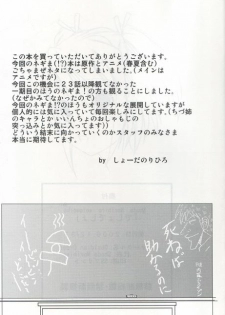 この本を買っていただいてありがとうございます。
今回のネギま(!?)本は原作とアニメ(春夏含む)
ごちゃまぜネタになってしまいました。(メインは
アニメですが)
今回この機会に２３話以降観てなかった
一期目のほうのネギま！の方も観ることにしました。
(なぜかみてなかったので)
今回のネギま!?のほうもオリジナルな展開していますが
個人的に気に入っていて毎回楽しみにしてます。(ちづ姉
のキャラとか いいんちょのおしゃもじの
突っ込みとかが気に入ってます)
どういう結末に向かっていくのかスタッフのみなさま
本当に期待してます。
by　しょーだのりひろ
死ねば
助かるのに